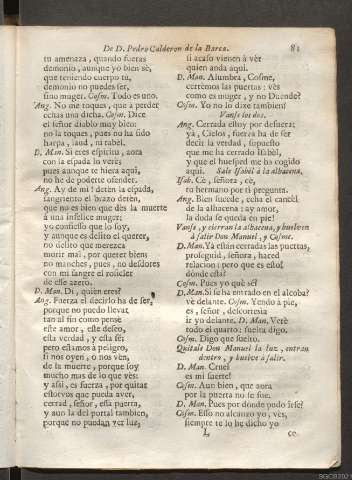 De D. Pedro Calderon de la Barca. 81
tu amenaza, quando fueras
demonio, aunque yo bien sé,
que teniendo cuerpo tú,
demonio no puedes ser,
sino muger. Cosm. Todo es uno.
Ang. No me toques, que á perder
echas una dicha. Cosm. Dice
el señor diablo muy bien:
no la toques, pues no ha sido
harpa, laud, ni rabel.
D. Man. Si eres espiritu, aora
con la espada lo veré;
pues aunque te hiera aqui,
no he de poderte ofender.
Ang. Ay de mi! detén la espada,
sangriento el brazo detén,
que no es bien que dés la muerte
á una infelice muger:
yo confiesso que lo soy,
y aunque es delito el querer,
no delito que merezca
morir mal, por querer bien:
no manches, pues, no desdores
con mi sangre el rosicler
de esse azero.
D. Man. Di, quien eres?
Ang. Fuerza el decirlo ha de ser,
porque no puedo llevar
tan al fin como pensé
este amor, este deseo,
esta verdad, y esta fé;
pero estamos á peligro,
si nos oyen, ó nos vén,
de la muerte, porque soy
mucho mas de lo que vés:
y assi, es fuerza, por quitar
estorvos que pueda aver,
cerrad, señor, essa puerta,
y aun la del portal tambien,
porque no puedan ver luz,
si acaso vienen á vér
quien anda aqui.
D. Man. Alumbra, Cosme,
cerrémos las puertas: vés
como es muger, y no Duende?
Cosm. Yo no lo dixe tambien?
Vanse los dos.
Ang. Cerrada estoy por defuera;
yá, Cielos, fuerza ha de ser
decir la verdad, supuesto
que me ha cerrado Isabèl,
y que el huesped me ha cogido
aqui. Sale Isabél á la alhacena.
Isab. Cé, señora, cé,
tu hermano por ti pregunta.
Ang. Bien sucede, echa el cancél
de la alhacena: ay amor,
la duda se queda en pie!
Vanse, y cierran la alhacena, y buelven
á salir Don Manuel, y Cosme.
D. Man. Yá están cerradas las puertas,
proseguid, señora, haced
relacion; pero que es esto?
dónde está?
Cosm. Pues yo qué sé?
D. Man. Si se ha entrado en el alcoba?
vé delante. Cosm. Yendo á pie,
es, señor, descortesia
ir yo delante. D. Man. Veré
todo el quarto: suelta digo.
Cosm. Digo que suelto.
Quitale Don Manuel la luz, entran
dentro, y buelve á salir.
D. Man. Cruel
es mi suerte!
Cosm. Aun bien, que aora
por la puerta no se fue.
D. Man. Pues por dónde pudo irse?
Cosm. Esso no alcanzo yo, vés,
siempre te lo he dicho yo
L co-
SGCB202